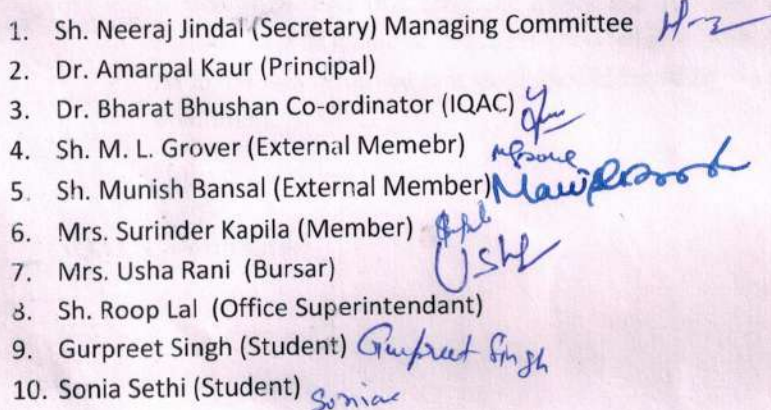 1. Sh. Neeraj Jindal (Secretary) Managing Committee
2. Dr. Amarpal Kaur (Principal)
3. Dr. Bharat Bhushan Co-ordinator (IQAC)
4. Sh. M. L. Grover (External Memebr)
5. Sh. Munish Bansal (External Member)
6. Mrs. Surinder Kapila (Member)
7. Mrs. Usha Rani (Bursar) Usha
8. Sh. Roop Lal (Office Superintendant)
9. Gurpreet Singh (Student) Gurpreet Singh
10. Sonia Sethi (Student) Sonia